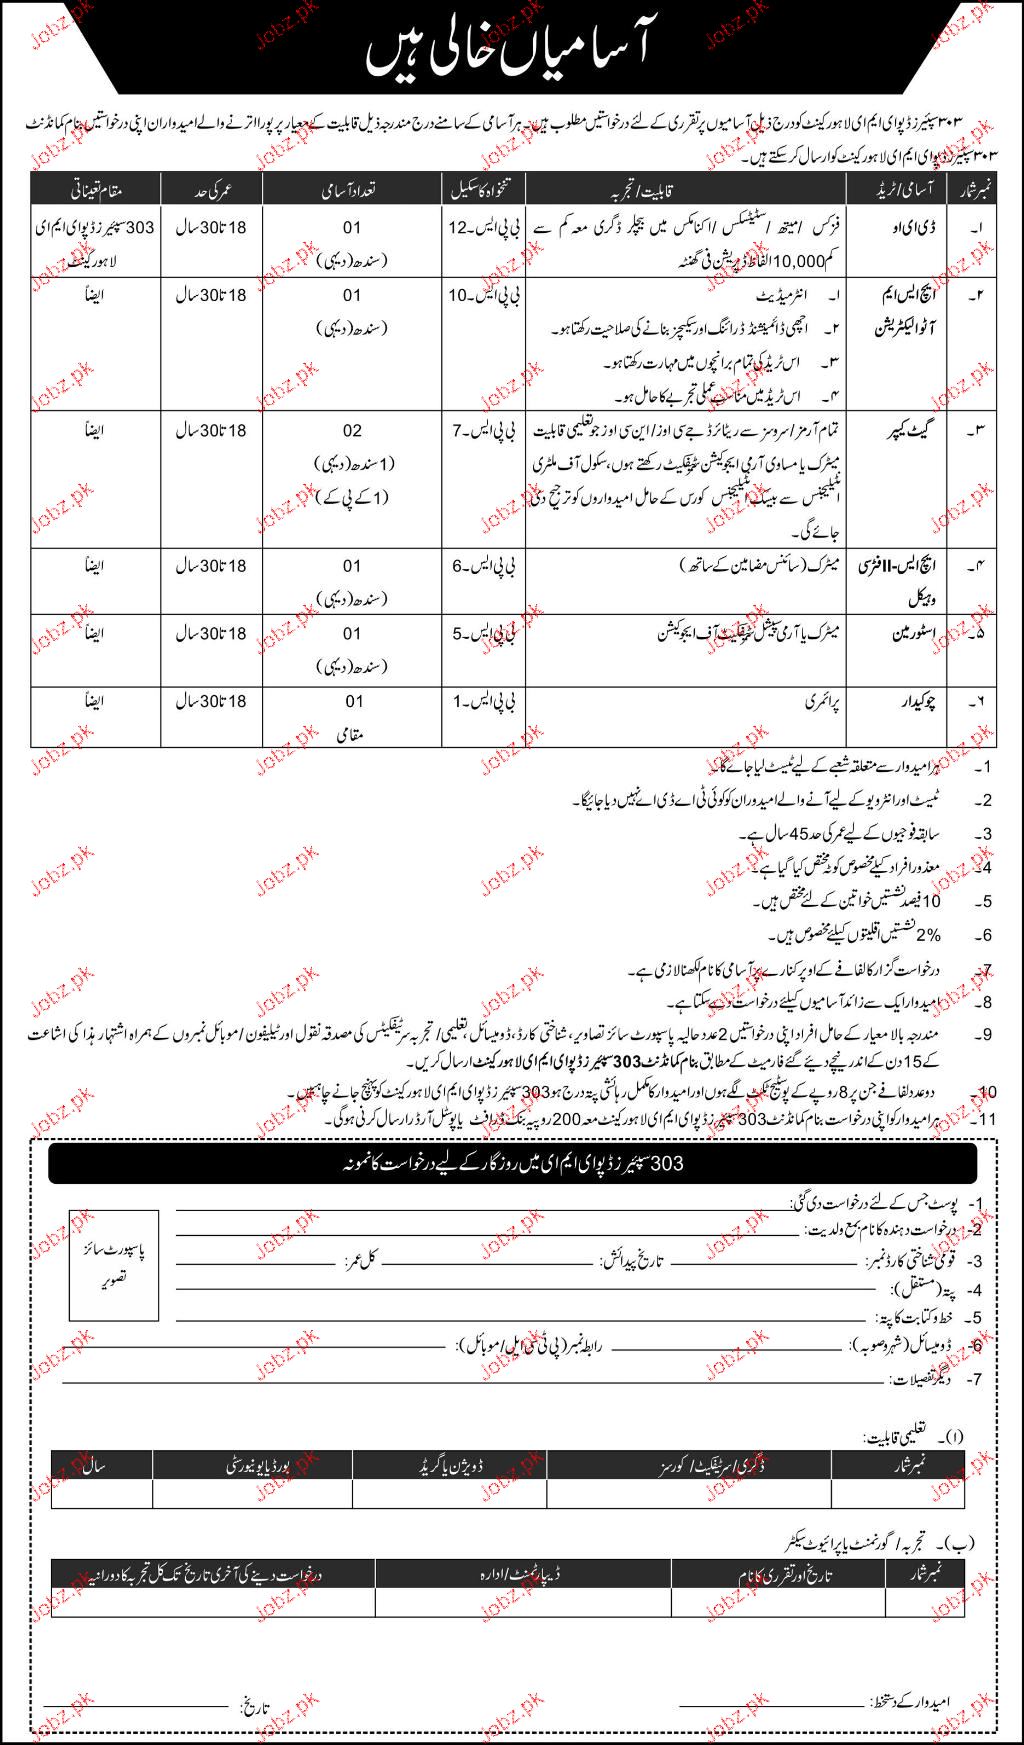 آسامیاں خالی ہیں
۳۰۳ سپئیرز ڈپو ای ایم ای لاہور کینٹ کو درج ذیل آسامیوں پر تقرری کے لئے درخواستیں مطلوب ہیں۔ ہر آسامی کے سامنے درج مندرجہ ذیل قابلیت کے معیار پر پورا اترنے والے امیدواران اپنی درخواستیں بنام کمانڈنٹ
۳۰۳ سپئیرز ڈپو ای ایم ای لاہور کینٹ کو ارسال کر سکتے ہیں۔
نمبر شمار آسامی/ٹریڈ قابلیت/تجربہ تنخواہ کا سکیل تعداد آسامی عمر کی حد مقام تعیناتی
۱۔ ڈی ای او فزکس /میتھ /سٹیٹسکس /اکنامکس میں بیچلر ڈگری معہ کم سے بی پی ایس۔12 01 18 تا 30 سال 303 سپئیرز ڈپو ای ایم ای
کم 10,000 الفاظ ڈپریشن فی گھنٹہ (سندھ (دیہی) لاہور کینٹ
۲۔ ایچ ایس ایم ا۔ انٹرمیڈیٹ بی پی ایس۔10 01 18 تا 30 سال ایضاً
آٹو الیکٹریشن ۲۔ اچھی ڈائمینشنڈ ڈرائنگ اور سکیچز بنانے کی صلاحیت رکھتا ہو۔ (سندھ (دیہی)
۳۔ اس ٹریڈ کی تمام برانچوں میں مہارت رکھتا ہو۔
۴۔ اس ٹریڈ میں مناسب عملی تجربے کا حامل ہو۔
۳۔ گیٹ کیپر تمام آرمز/سروسز سے ریٹائرڈ جے سی اوز/این سی اوز جو تعلیمی قابلیت بی پی ایس۔7 02 18 تا 30 سال ایضاً
میٹرک یا مساوی آرمی ایجوکیشن سرٹیفکیٹ رکھتے ہوں، سکول آف ملٹری (1 سندھ (دیہی)
انٹیلیجنس سے بیسک انٹیلیجنس کورس کے حامل امیدواروں کو ترجیح دی (1 کے پی کے)
جائے گی۔
۴۔ ایچ ایس-II فٹرسی میٹرک (سائنس مضامین کے ساتھ) بی پی ایس۔6 01 18 تا 30 سال ایضاً
وہیکل (سندھ (دیہی)
۵۔ اسٹورمین میٹرک یا آرمی سپیشل سرٹیفکیٹ آف ایجوکیشن بی پی ایس۔5 01 18 تا 30 سال ایضاً
(سندھ (دیہی)
۶۔ چوکیدار پرائمری بی پی ایس۔1 01 18 تا 30 سال ایضاً
مقامی
1۔ ہر امیدوار سے متعلقہ شعبے کے لیے ٹیسٹ لیا جائے گا۔
2۔ ٹیسٹ اور انٹرویو کے لیے آنے والے امیدوران کو کوئی ٹی اے ڈی اے نہیں دیا جائیگا۔
3۔ سابقہ فوجیوں کے لیے عمر کی حد 45 سال ہے۔
4۔ معذور افراد کیلئے مخصوص کوٹہ مختص کیا گیا ہے۔
5۔ 10 فیصد نشستیں خواتین کے لئے مختص ہیں۔
6۔ 2% نشستیں اقلیتوں کیلئے مخصوص ہیں۔
7۔ درخواست گزار کا لفافے کے اوپر کنارے پر آسامی کا نام لکھنا لازمی ہے۔
8۔ امیدوار ایک سے زائد آسامیوں کیلئے درخواست دے سکتا ہے۔
9۔ مندرجہ بالا معیار کے حامل افراد اپنی درخواستیں 2 عدد حالیہ پاسپورٹ سائز تصاویر، شناختی کارڈ، ڈومیسائل، تعلیمی/تجربہ سرٹیفکیٹس کی مصدقہ نقول اور ٹیلیفون/موبائل نمبروں کے ہمراہ اشتہار ہذا کی اشاعت
کے 15 دن کے اندر نیچے دیئے گئے فارمیٹ کے مطابق بنام کمانڈنٹ 303 سپئیرز ڈپو ای ایم ای لاہور کینٹ ارسال کریں۔
10۔ دو عدد لفافے جن پر 8 روپے کے پوسٹیج ٹکٹ لگے ہوں اور امیدوار کا مکمل رہائشی پتہ درج ہو 303 سپئیرز ڈپو ای ایم ای لاہور کینٹ کو پہنچ جانے چاہئیں۔
11۔ ہر امیدوار کو اپنی درخواست بنام کمانڈنٹ 303 سپئیرز ڈپو ای ایم ای لاہور کینٹ معہ 200 روپیہ بنک ڈرافٹ یا پوسٹل آرڈر ارسال کرنی ہو گی۔
303 سپئیرز ڈپو ای ایم ای میں روزگار کے لیے درخواست کا نمونہ
1- پوسٹ جس کے لئے درخواست دی گئی:
2- درخواست دہندہ کا نام بمع ولدیت:
پاسپورٹ سائز
تصویر
3- قومی شناختی کارڈ نمبر: تاریخ پیدائش: کل عمر:
4- پتہ (مستقل):
5۔ خط و کتابت کا پتہ:
6- ڈومیسائل (شہر وصوبہ): رابطہ نمبر (پی ٹی سی ایل/موبائل):
7- دیگر تفصیلات:
(ا)۔ تعلیمی قابلیت:
نمبر شمار ڈگری/سرٹیفکیٹ/کورسز ڈویژن یا گریڈ بورڈ یا یونیورسٹی سال
(ب)۔ تجربہ/گورنمنٹ یا پرائیوٹ سیکٹر
نمبر شمار تاریخ اور تقرری کا نام ڈیپارٹمنٹ/ادارہ درخواست دینے کی آخری تاریخ تک کل تجربہ کا دورانیہ
امیدوار کے دستخط: تاریخ:
Jobz.pk